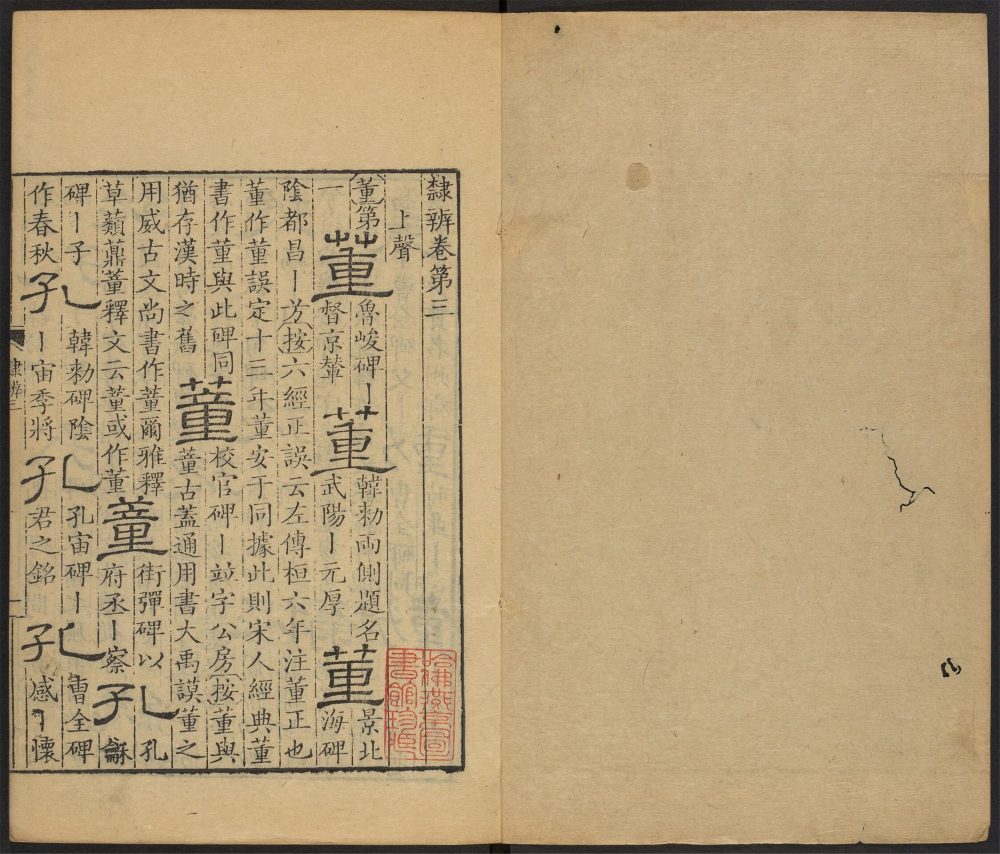 隸辨卷第三
上聲
董第一董魯峻碑丨督京輦董韓勑兩側題名武陽丨元厚董景北海碑
陰都昌丨芳按六經正誤云左傳桓六年注董正也
董作蕫誤定十三年董安于同據此則宋人經典董
書作董與此碑同猶存漢時之舊蕫校官碑丨竝字公房按董與蕫古蓋通用書大禹謨董之
用威古文尚書作蕫爾雅釋草蘱薡蕫釋文云蕫或作董蕫街彈碑以府丞丨察孔孔龢
碑丨子作春秋孔韓勑碑陰丨宙季將孔孔宙碑丨君之銘孔曹全碑感丨懷
隸辨三
一
哈佛燕京圖
書館珍藏